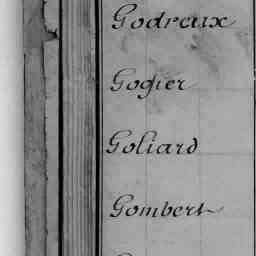 Godreux
Gogier
Goliard
Gombert